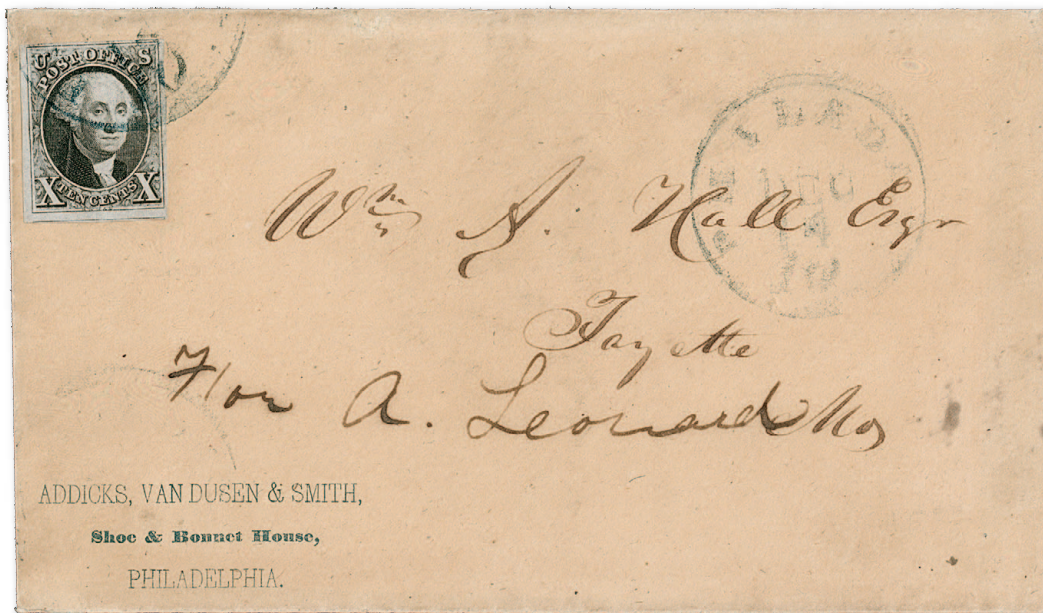 U S
POST OFFICE
X TEN CENTS X
10
DEC
Wm A. Hall Esqr
Fayette
Hon A. Leonard Mo
ADDICKS, VAN DUSEN & SMITH,
Shoe & Bonnet House,
PHILADELPHIA.